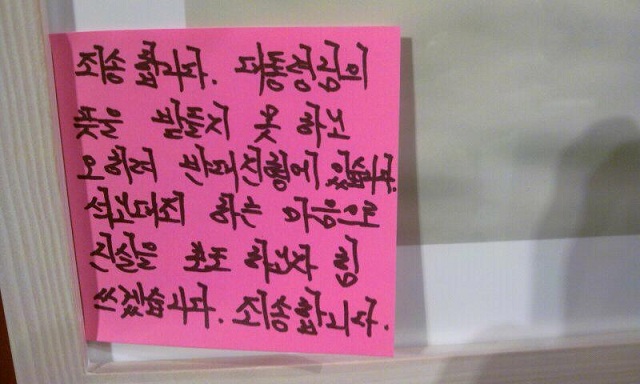 죄송합니다. 대통령님의
뜻을 받들지 못 하고
오히려 있습니다.
석고대죄 하는 마음으로
진실을 보도 하고자 힘
쓰겠습니다. 죄송합니다.